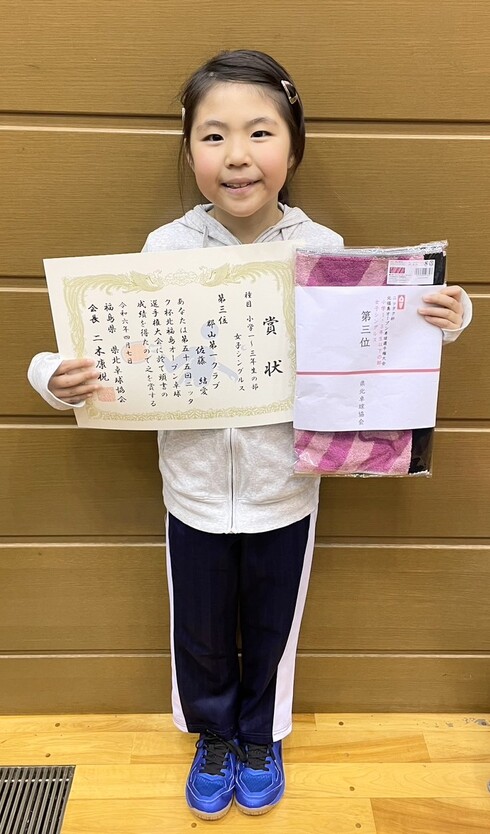 賞状
種目 小学一~三年生の部
女子シングルス
第三位
郡山第一クラブ
佐藤 結愛
あなたは第五十五回ニッタ
ク杯北福島オープン卓球
選手権大会に於て頭書の
成績を得たので之を賞する
令和六年四月七日
福島県 県北卓球協会
会長 二木康祝
第三位
県北卓球協会